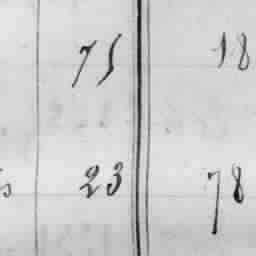 75 18
23 78